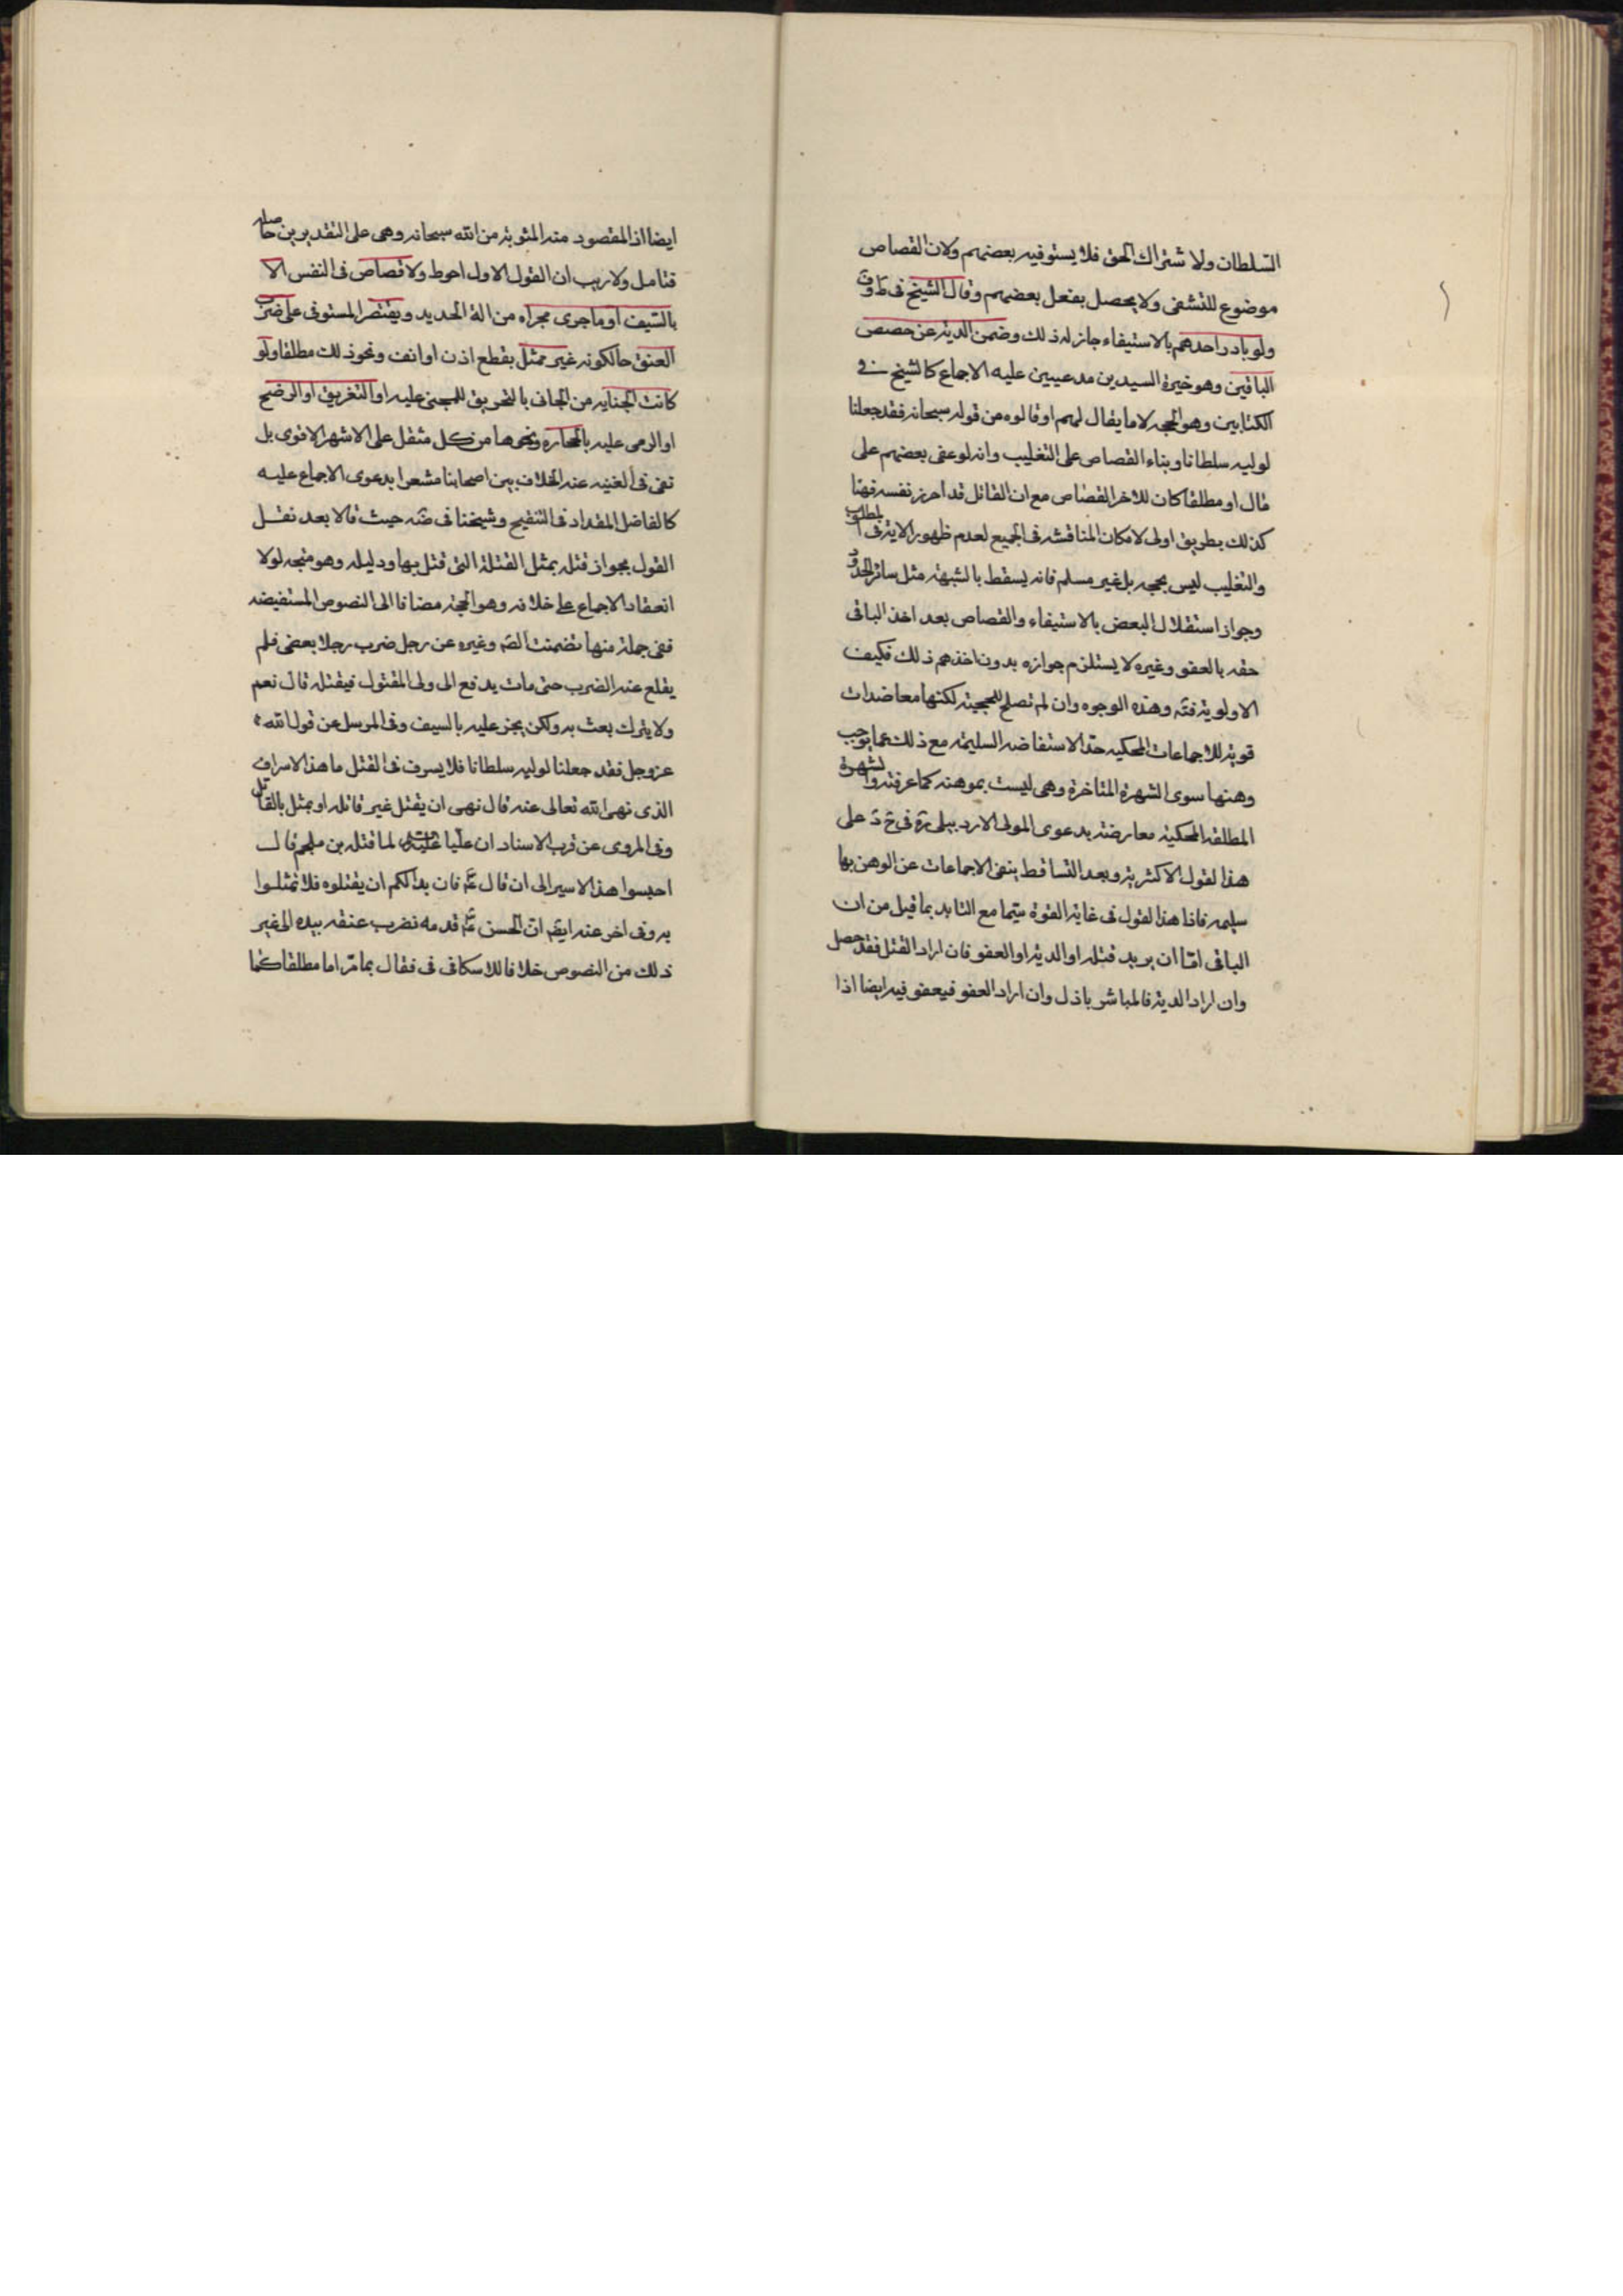 السلطان ولاشتراك الحق فلا يستوفيه بعضهم ولان القصاص
موضوع للتشفى ولا يحصل بفعل بعضهم وقال الشيخ فى ط و ف
ولو بادر احدهم بالاستيفاء جاز له ذلك وضمن الدية عن حصص
الباقين وهو خيرة السيدين مدعيين عليه الاجماع كالشيخ فى
الكتابين وهو الحجه لا ما يقال لهم او قالوه من قوله سبحانه فقد جعلنا
لوليه سلطانا وبناء القصاص على التغليب وانه لو عفى بعضهم على
مال او مطلقا كان للاخر القصاص مع ان القاتل قد احرز نفسه فهنا
كذلك بطريق اولى لامكان المناقشه فى الجميع لعدم ظهور الاية فى المطلوب
والتغليب ليس بحجه بل غير مسلم فانه يسقط بالشبهة مثل سائر الحدود
وجواز استقلال البعض بالاستيفاء والقصاص بعد اخذ الباقى
حقه بالعفو وغيره لا يستلزم جوازه بدون اخذهم ذلك فكيف
الاولوية فتم وهذه الوجوه وان لم تصلح للحجية لكنها معاضدات
قوية للاجماعات المحكيه حد الاستفاضه السليمه مع ذلك عما يوجب
وهنها سوى الشهرة المتاخرة وهى ليست بموهنه كما عرفته والشهرة
المطلقه المحكية معارضة بدعوى المولى الاردبيلى ره فى ح د على
هذا لقول الاكثرية وبعد التساقط ينفى الاجماعات عن الوهن بها
سليمه فاذا هذا لقول فى غاية القوة سيما مع التايد بما قيل من ان
الباقى اما ان يريد قتله او الدية او العفو فان اراد القتل فقد حصل
وان اراد الدية فالمباشر باذل وان اراد العفو فيعفو فيه ايضا اذا
ايضا اذ المقصود منه المثوبة من الله سبحانه وهى على التقديرين حاصله
فتامل ولا ريب ان القول الاول احوط ولا قصاص فى النفس الا
بالسيف او ما جرى مجراه من الة الحديد ويقتصر المستوفى على ضرب
العنق حالكونه غير ممثل بقطع اذن او انف ونحو ذلك مطلقا ولو
كانت الجنايه من الجانى بالتحريق للمجنى عليه او التغريق او الرضح
او الرمى عليه بالحجاره ونحوها من كل مثقل على الاشهر الاقوى بل
نفى فى الغنيه عنه الخلاف بين اصحابنا مشعرا بدعوى الاجماع عليه
كالفاضل المقداد فى التنقيح وشيخنا فى ضه حيث قالا بعد نقل
القول بجواز قتله بمثل القتلة التى قتل بها ودليله وهو متجه لولا
انعقاد الاجماع على خلافه وهو الحجة مضافا الى النصوص المستفيضه
ففى جملة منها تضمنت الصه وغيره عن رجل ضرب رجلا بعصى فلم
يقلع عنه الضرب حتى مات يدفع الى ولى المقتول فيقتله قال نعم
ولا يترك بعث به ولكن يجز عليه بالسيف وفى المرسل عن قول الله
عز وجل فقد جعلنا لوليه سلطانا فلا يسرف فى القتل ما هذا الاسراف
الذى نهى الله تعالى عنه قال نهى ان يقتل غير قاتله او يمثل بالقاتل
وفى المروى عن قرب الاسناد ان عليا لما قتله بن ملجم قال
احبسوا هذا الاسير الى ان قال ع فان بدالكم ان يقتلوه فلا تمثلوا
به وفى اخر عنه ايضا ان الحسن ع قدمه فضرب عنقه بيده الى غير
ذلك من النصوص خلافا للاسكافى فى فقال بمامر اما مطلقا كما